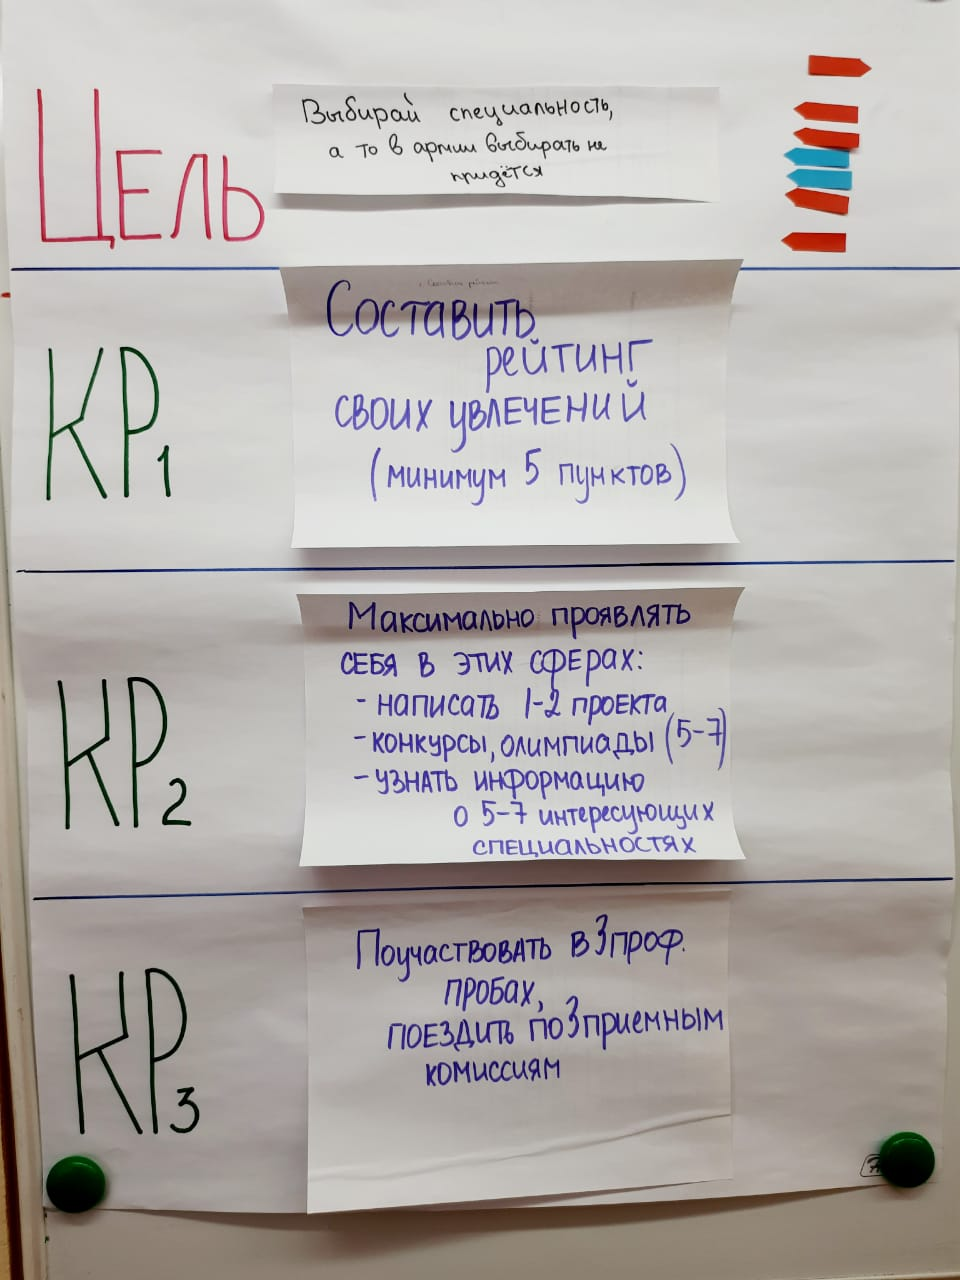 Цель
Выбирай специальность,
а то в армии выбирать не
придётся
КР1
Составить
рейтинг
своих увлечений
(минимум 5 пунктов)
КР2
Максимально проявлять
себя в этих сферах:
- написать 1-2 проекта
- конкурсы, олимпиады (5-7)
- узнать информацию
о 5-7 интересующих
специальностях
КР3
Поучаствовать в 3 проф.
пробах,
поездить по 3 приемным
комиссиям